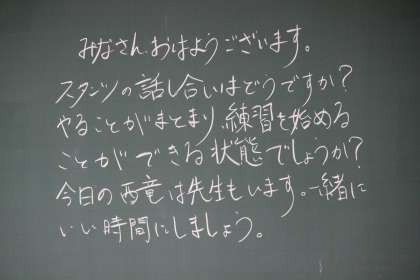 みなさん、おはようございます。
スタンツの話し合いはどうですか?
やることがまとまり、練習を始める
ことができる状態でしょうか?
今日の西竜は先生もいます。一緒に
いい時間にしましょう。